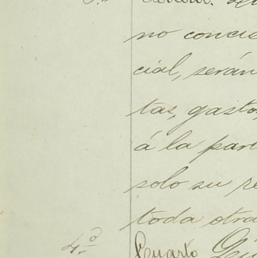 no concie
cial, serán
tas, gasto
á la par
solo su re
toda otra
4.º Cuarto